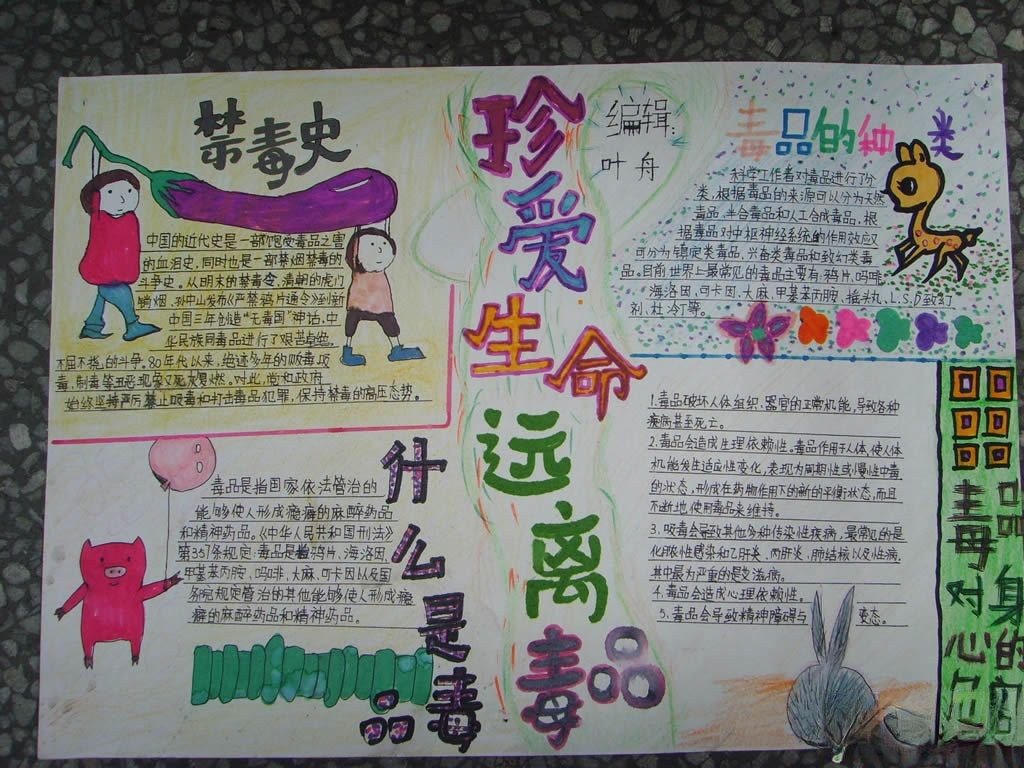 珍爱生命远离毒品
编辑:
叶舟
禁毒史
中国的近代史是一部饱受毒品之害
的血泪史,同时也是一部禁烟禁毒的
斗争史。从明末的禁毒令,清朝的虎门
销烟,孙中山发布《严禁鸦片通令》到新
中国三年创造“无毒国”神话,中
华民族同毒品进行了艰苦卓绝,
不屈不挠,的斗争。80年代以来,绝迹多年的吸毒、贩
毒,制毒等丑恶现象又死灰复燃。对此,党和政府
始终坚持严厉禁止吸毒和打击毒品犯罪,保持禁毒的高压态势。
毒品的种类
科学工作者对毒品进行了分
类,根据毒品的来源可以分为天然
毒品,半合毒品和人工合成毒品,根
据毒品对中枢神经系统的作用效应
可分为镇定类毒品,兴奋类毒品和致幻类毒
品。目前世界上最常见的毒品主要有:鸦片,吗啡,
海洛因,可卡因,大麻,甲基苯丙胺,摇头丸,L.S.D致幻
剂、杜冷丁等。
什么是毒品
毒品是指国家依法管治的
能够使人形成瘾癖的麻醉药品
和精神药品。《中华人民共和国刑法》
第357条规定:毒品是鸦片、海洛因
甲基苯丙胺、吗啡、大麻、可卡因以及国
务院规定管治的其他能够使人形成瘾
癖的麻醉药品和精神药品。
毒品对身心的
1.毒品破坏人体组织、器官的正常机能,导致各种
疾病甚至死亡。
2.毒品会造成生理依赖性。毒品作用于人体,使人体
机能发生适应性变化,表现为周期性或慢性中毒
的状态,形成在药物作用下的新的平衡状态,而且
不断地使用毒品来维持。
3.吸毒会导致其他多种传染性疾病,最常见的是
化脓性感染和乙肝炎、丙肝炎,肺结核以及性病,
其中最为严重的是艾滋病。
4.毒品会造成心理依赖性。
5.毒品会导致精神障碍与变态。